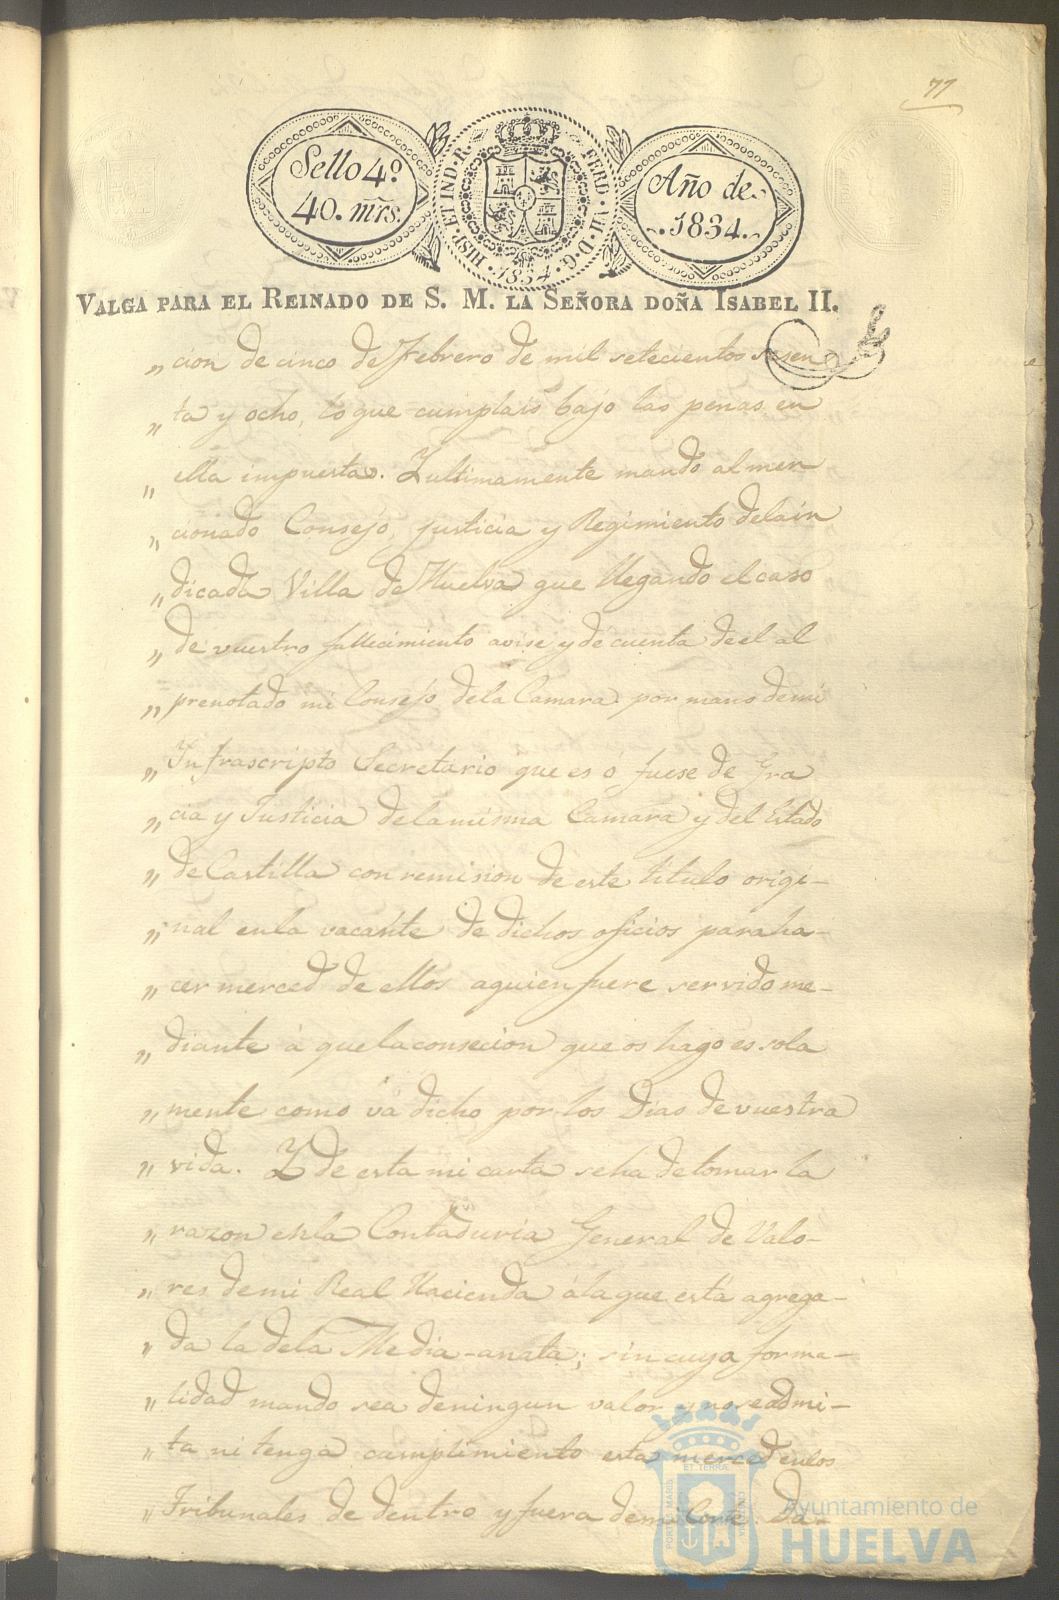 77
Sello 4º
40. mrs.
HISP. ET IND. R. FERD. VII. D. G. 1834.
Año de
1834.
VALGA PARA EL REINADO DE S. M. LA SEÑORA DOÑA ISABEL II.
„ cion de cinco de Febrero de mil setecientos sesen
„ ta y ocho, lo que cumplais bajo las penas en
„ ella impuestas. Y ultimamente mando al men
„ cionado Consejo, justicia y Regimiento dela in
„ dicada Villa de Huelva que llegando el caso
„ de vuestro fallecimiento avise y dé cuenta de el al
„ prenotado mi Consejo de la Camara por mano de mi
„ Infrascripto Secretario que es ó fuese de Gra
„ cia y Justicia de la misma Camara y del Estado
„ de Castilla con remision de este titulo origi-
„ nal en la vacante de dichos oficios para ha-
„ cer merced de ellos a quien fuere servido me-
„ diante á que la consecion que os hago es sola
„ mente como vá dicho por los Dias de vuestra
„ vida. Y de esta mi carta se ha de tomar la
„ razon en la Contaduria General de Valo-
„ res de mi Real Hacienda á la que está agrega-
„ da la dela Media-anata; sin cuya forma-
„ lidad mando sea de ningun valor y no se admi-
„ ta ni tenga cumplimiento esta merced en los
„ Tribunales de dentro y fuera de mi Corte. Da-
PORTUS MARIS ET TERRÆ CUSTODIA
Ayuntamiento de
HUELVA